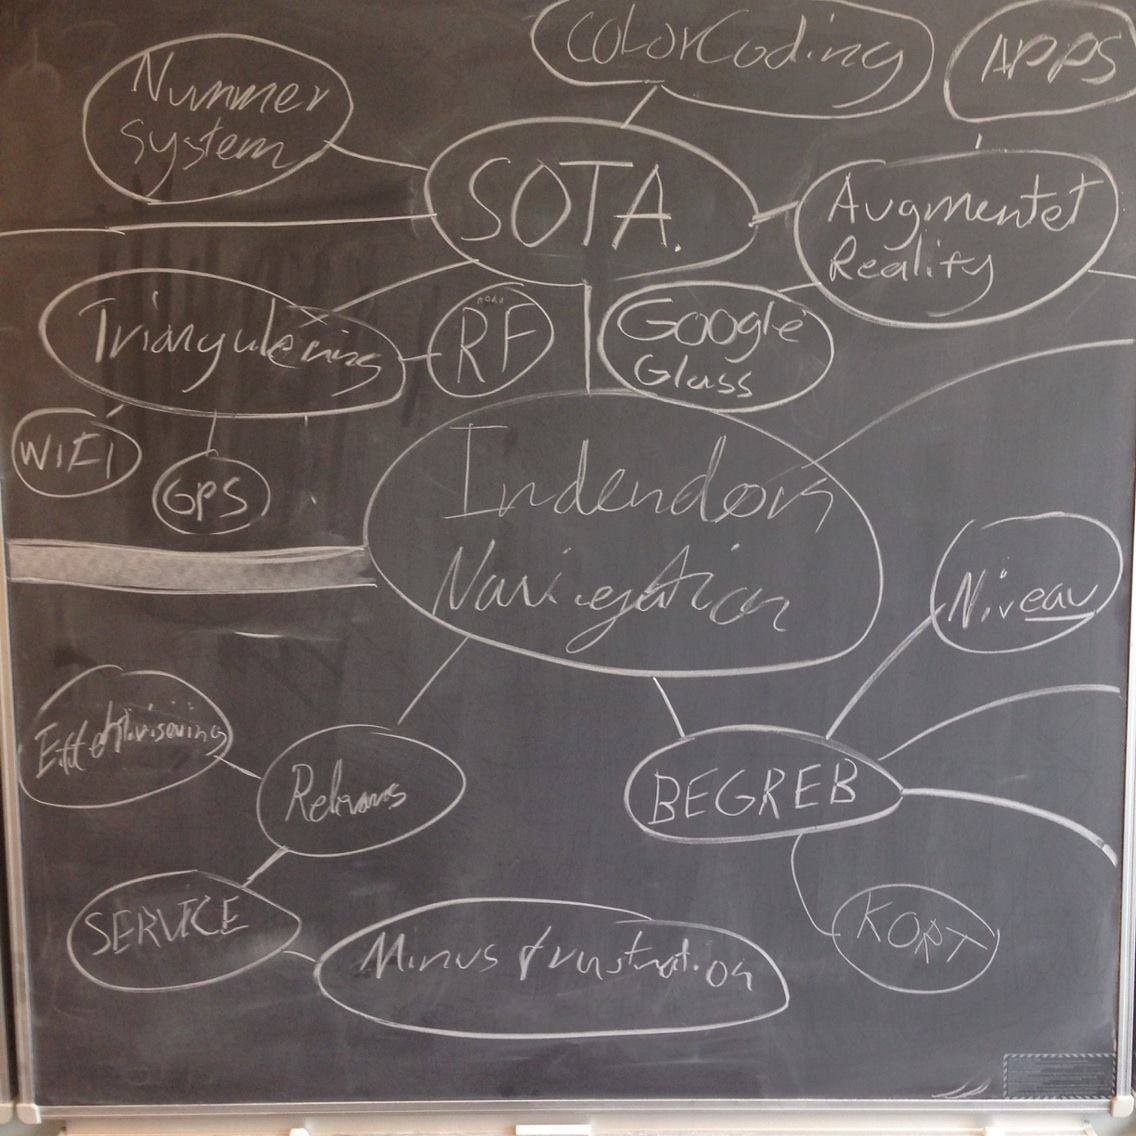 ColorCoding
APPS
Nummer
system
SOTA.
Augmentet
Reality
Triangulering
RF
Google
Glass
WIFI
GPS
Indendørs
Navigation
Niveau
Relevans
BEGREB
SERVICE
KORT
Minus frustration